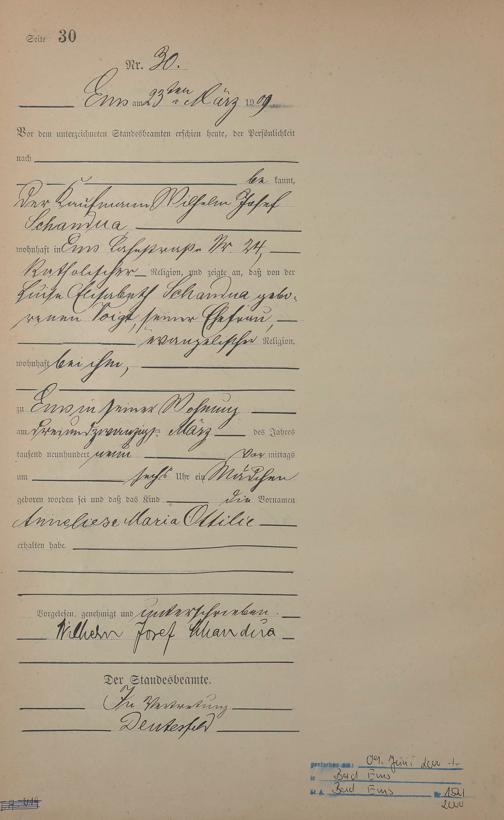 Seite 30
Nr. 30.
Ems am 23ten März 1909
Vor dem unterzeichneten Standesbeamten erschien heute, der Persönlichkeit
nach
be kannt,
der Kaufmann Wilhelm Josef
Schandua
wohnhaft in Ems Nr 24,
katholischer Religion, und zeigte an, daß von der
Luise Elisabeth Schandua gebo-
renen Voigt, seiner Ehefrau,
evangelischer Religion,
wohnhaft bei ihm,
zu Ems in seiner Wohnung
am dreiundzwanzigsten März des Jahres
tausend neunhundert neun Vor mittags
um sechs Uhr ein Mädchen
geboren worden sei und daß das Kind die Vornamen
Anneliese Maria Ottilie
erhalten habe.
Vorgelesen, genehmigt und unterschrieben.
Wilhelm Josef Schandua
Der Standesbeamte.
In Vertretung
gestorben am: 09. Juni 2000
in Bad Ems
St. A. Bad Ems Nr 152/
2000